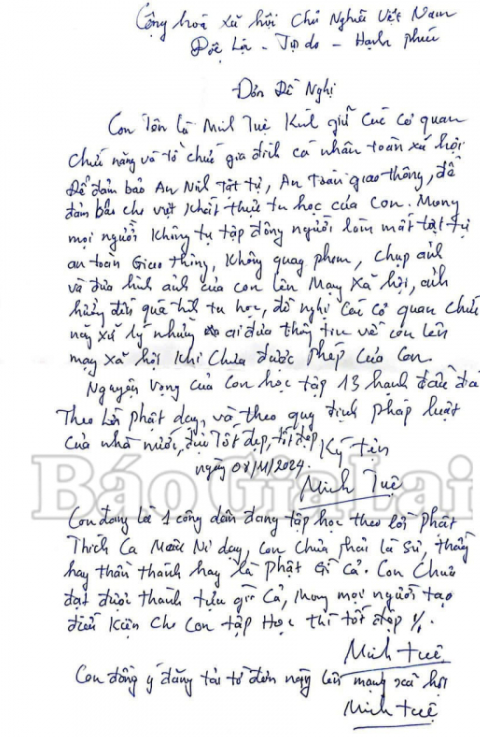 Cộng hoà xã hội Chủ Nghĩa Việt Nam
Độc Lập - Tự do - Hạnh phúc
Đơn Đề Nghị
Con Tên là Minh Tuệ Kính gửi Các Cơ quan
Chức năng và Tổ chức gia đình cá nhân toàn xã hội
Để đảm bảo An Ninh Tật tự, An Toàn giao thông, để
đảm bảo cho việt Khất thực tu học của Con. Mong
mọi người Không tụ tập đông người làm mất tật tự
an toàn Giao thông, Không quay phim, chụp ảnh
và đưa hình ảnh của con lên Mạng Xã hội, ảnh
hưởng đến quá trình tu học, đề nghị Các Cơ quan Chức
năng xử lý những ai đưa thông tin về con lên
mạng xã hội Khi Chưa được phép Của Con.
Nguyện Vọng của Con học tập 13 hạnh đầu đà
Theo Lời phật dạy, và theo quy định pháp luật
Của nhà nước, được Tốt đẹp, tốt đẹp Ký tên
ngày 08/11/2024.
Minh Tuệ
Báo Gia Lai
Con đang là 1 công dân đang tập học theo lời phật
Thích Ca Mâu Ni dạy, con Chưa phải là Sư, thầy
hay thần thánh hay là phật Gì Cả. Con Chưa
đạt được thành tựu gì Cả, Mong mọi người tạo
điều Kiện Cho Con tập Học thì tốt đẹp
Minh Tuệ
Con đồng ý đăng tải tờ đơn này lên mạng xã hội
Minh Tuệ